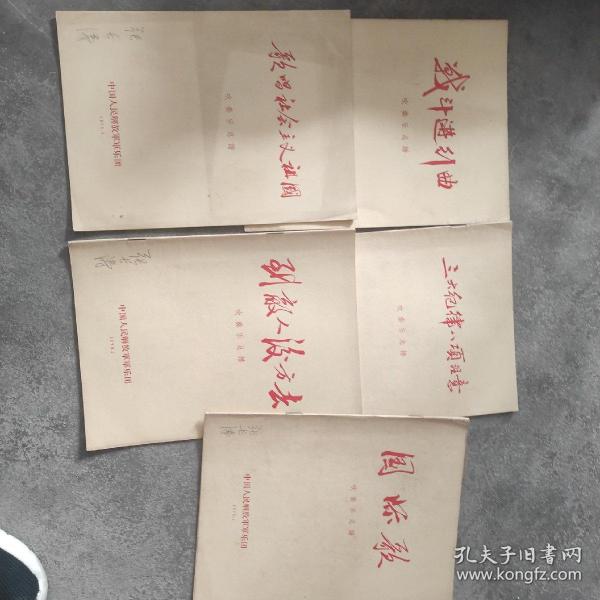 歌唱社会主义祖国
吹奏乐总谱
中国人民解放军军乐团
战斗进行曲
吹奏乐总谱
到敌人后方去
吹奏乐总谱
中国人民解放军军乐团
三大纪律八项注意
吹奏乐总谱
国际歌
吹奏乐总谱
中国人民解放军军乐团
孔夫子旧书网
www.kongfz.com